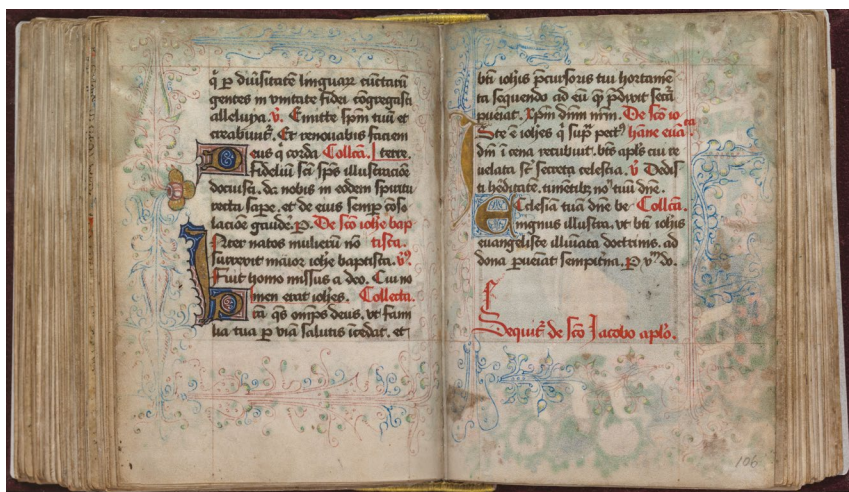 q̃ ꝑ diũsitatẽ linguaꝝ cũctaꝝ
gentes in vnitate fidei cõgregasti
allelupa. v̾. Emitte sp̃m tuũ et
creabũt᷑. Et renouabis faciem
Deus q̃ corda Collcã. terre.
fideliũ sc̃i sp̃s illustracõe
docuisti. da nobis in eodem spiritu
recta sape. et de eius semp cõso
lacõne gaudẽ. p. De sc̃o ioh̃e bap
Inter natos mulierũ nõ tista.
surrexit maior ioh̃e baptista. v̾.
Fuit homo missus a deo. Cui no
Pmen erat ioh̃es. Collecta.
sta q̃s omp̃s deus. vt fami
lia tua ꝑ viã salutis icedat. et
bti ioh̃is p̃cursoris tui hortame
ta sequendo ad eũ q̃ p̃dixit secũ
pueiat. xp̃m dñm nr̃m. De sc̃o io
Iste ẽ ioh̃es q̃ sup̃ pect᷒ hane euã ta
dñi i cena recubuit. bt̃s apl̃s cui re
uelata st̃ secreta celestia. v̾ Dedis
ti h̃editatẽ. timetib᷒ no᷑ tuũ dñe.
Ecclesiã tuã dñe be Collcã.
nignus illustra. vt bti ioh̃is
euangeliste illũiata doctrinis. ad
dona pueiat sempit̃na. P xp̃m do.
Sequit᷑ de sc̃o Iacobo aplõ.
106